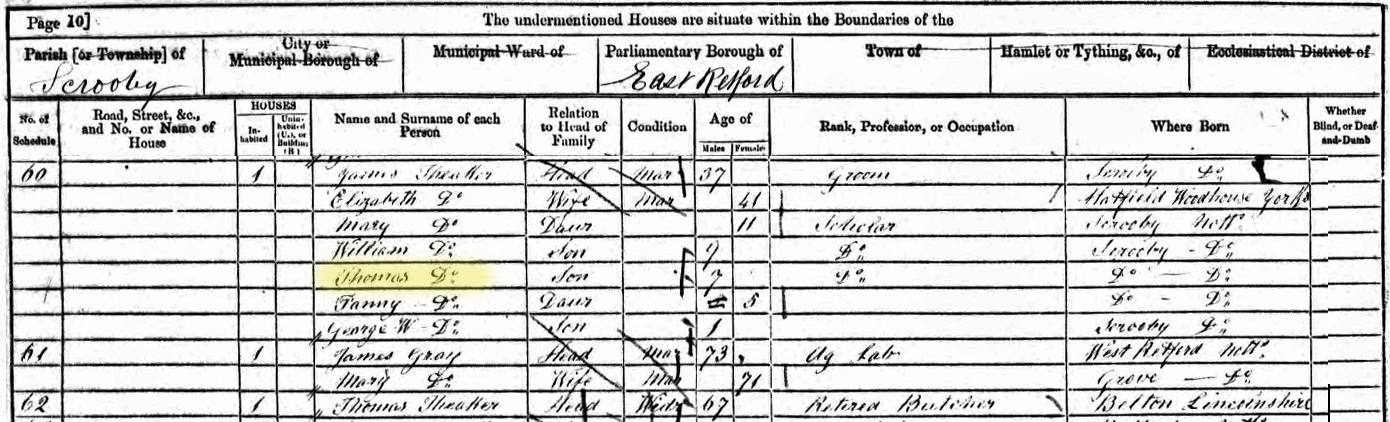 Page 10] The undermentioned Houses are situate within the Boundaries of the
Parish [or Township] of City or Municipal Borough of Municipal Ward of Parliamentary Borough of Town of Hamlet or Tything, &c., of Ecclesiastical District of
Scrooby East Retford
No. of Schedule Road, Street, &c., and No. or Name of House HOUSES Inhabited Uninhabited (U.), or Building (B.) Name and Surname of each Person Relation to Head of Family Condition Age of Males Females Rank, Profession, or Occupation Where Born Whether Blind, or Deaf-and-Dumb
60 1 James Theaker Head Mar 37 Groom Scrooby Do
Elizabeth Do Wife Mar 41 Hatfield Woodhouse Yorks
Mary Do Daur 11 Scholar Scrooby Notts
William Do Son 9 Do Scrooby - Do
Thomas Do Son 7 Do Do - Do
Fanny - Do Daur 5 Do - Do
George W - Do Son 1 Scrooby Do
61 1 James Gray Head Mar 73 Ag Lab West Retford Notts
Mary Do Wife Mar 71 Grove - Do
62 1 Thomas Theaker Head Widr 67 Retired Butcher Belton Lincolnshire